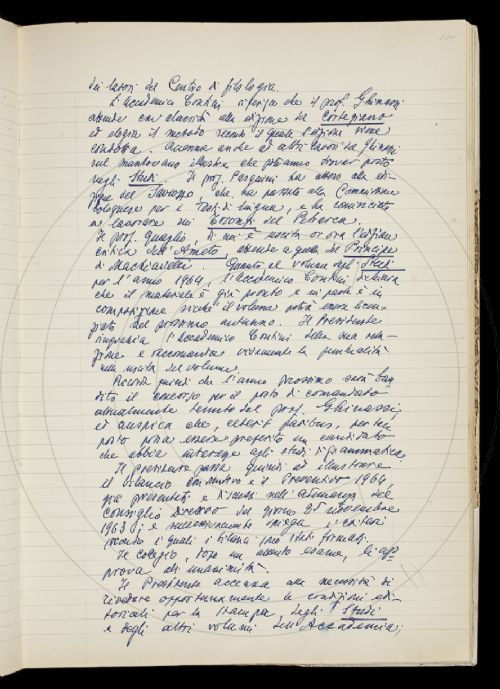 dei lavori del Centro di filologia.
L'accademico Contini riferisce che il prof. Ghinassi
attende con alacrità alla edizione del Cortegiano
ed elogia il metodo secondo il quale l'edizione viene
condotta. Accenna anche ad altri lavori del Ghinassi
sul mantovano illustre che potranno trovar posto
negli Studi. Il prof. Pasquini ha atteso alla edi-
zione del Saviozzo che ha passato alla Commissione
bolognese per i Testi di lingua, e ha cominciato
a lavorare sui Trionfi del Petrarca.
Il prof. Quaglio, di cui è uscita or ora l'edizione
critica dell'Ameto attende a quella del Principe
di Machiavelli. Quanto al volume degli Studi
per l'anno 1964, l'accademico Contini dichiara
che il materiale è già pronto e in parte è in
composizione sicché il volume potrà essere licen-
ziato nel prossimo autunno. Il Presidente
ringrazia l'accademico Contini della sua rela-
zione e raccomanda vivamente la puntualità
nella uscita del volume.
Ricorda quindi che l'anno prossimo sarà ban-
dito il concorso per il posto di comandato
attualmente tenuto dal prof. Ghinassi,
ed auspica che, ceteris paribus, per tale
posto possa essere preferito un candidato
che abbia interesse agli studi di grammatica.
Il Presidente passa quindi ad illustrare
il bilancio consuntivo e il Preventivo 1964,
già presentati e discussi nell'adunanza del
Consiglio Direttivo del giorno 25 novembre
1963; e successivamente spiega i criteri
secondo i quali i bilanci sono stati formati.
Il collegio, dopo un attento esame, li ap-
prova all'unanimità.
Il Presidente accenna alla necessità di
rivedere opportunamente le condizioni edi-
toriali per la stampa degli Studi
e degli altri volumi dell'Accademia;